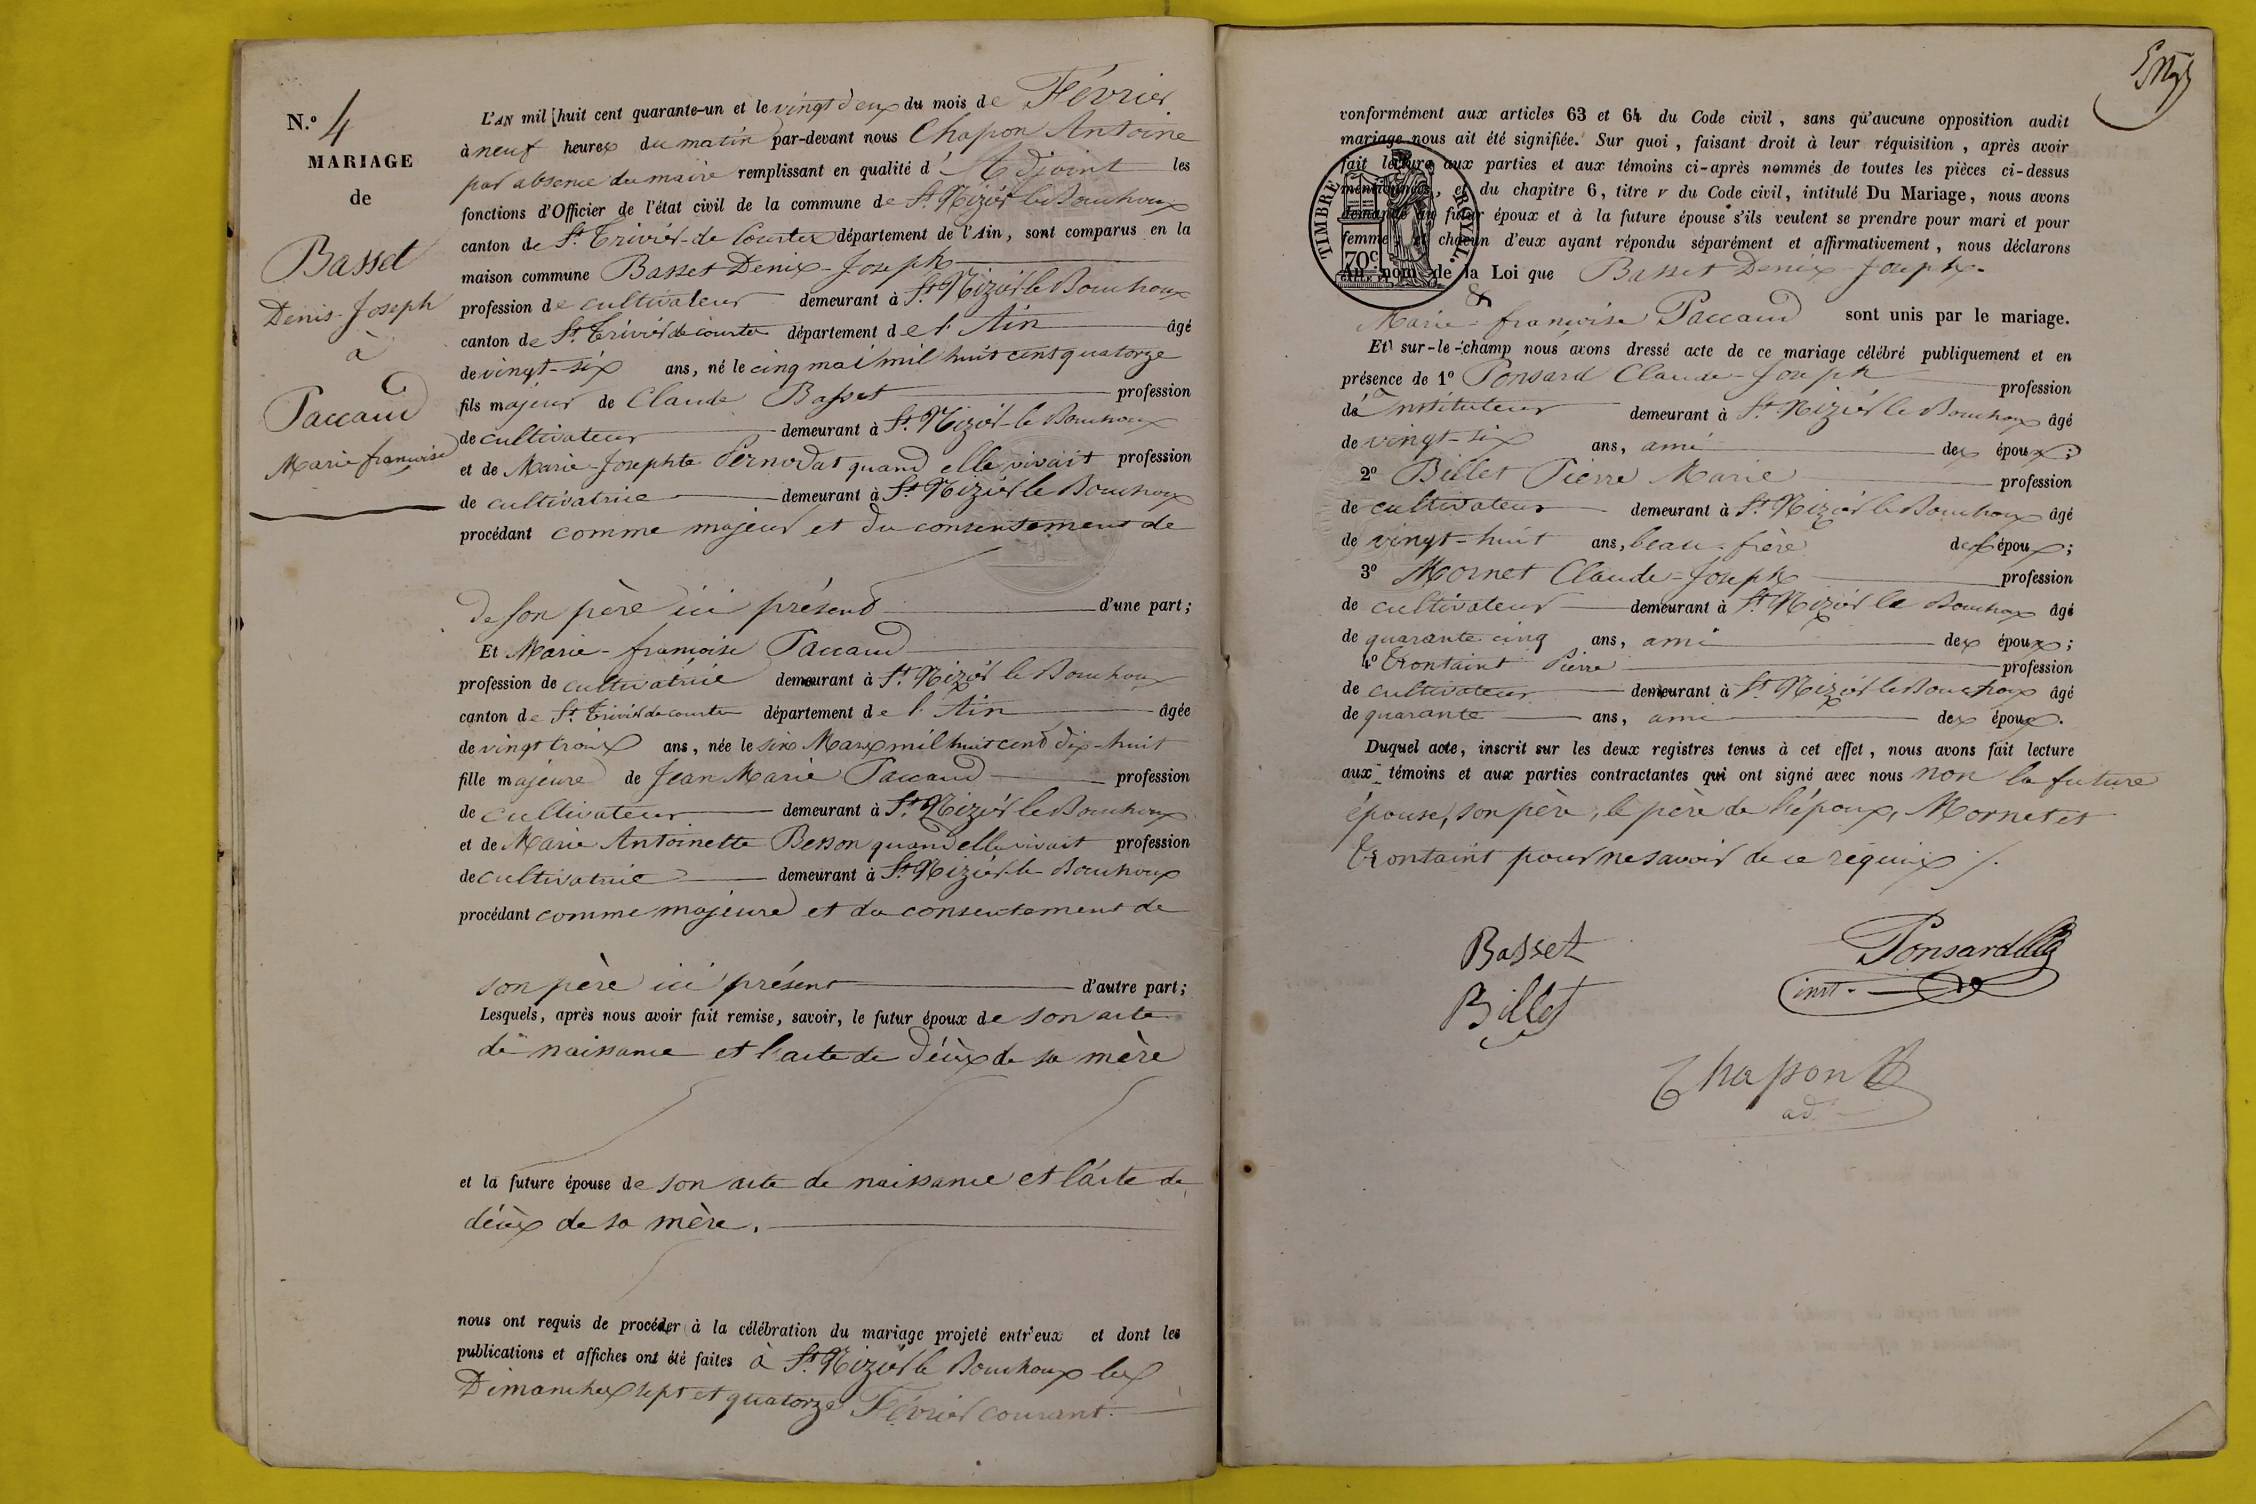 N.º 4
MARIAGE
de
Basset
Denis-Joseph
à
Paccaud
Marie françoise
L'AN mil huit cent quarante-un et le vingt deux du mois de Février
à neuf heures du matin par-devant nous Chapon Antoine
par absence du maire remplissant en qualité d'Adjoint les
fonctions d'Officier de l'état civil de la commune de St. Nizier le Bouchoux
canton de St. Trivier-de Courtes département de l'Ain, sont comparus en la
maison commune Basset Denis-Joseph
profession de cultivateur demeurant à St. Nizier le Bouchoux
canton de St. Trivier de courtes département de l'Ain âgé
de vingt-six ans, né le cinq mai mil huit cent quatorze
fils majeur de Claude Basset profession
de cultivateur demeurant à St. Nizier-le Bouchoux
et de Marie-Josephte Pernodat quand elle vivait profession
de cultivatrice demeurant à St. Nizier le Bouchoux
procédant comme majeur et du consentement de
de son père ici présent d'une part;
Et Marie-françoise Paccaud
profession de cultivatrice demeurant à St. Nizier le Bouchoux
canton de St. Trivier de courtes département de l'Ain âgée
de vingt trois ans, née le six Mars mil huit cent dix-huit
fille majeure de Jean Marie Paccaud profession
de cultivateur demeurant à St. Nizier le Bouchoux
et de Marie Antoinette Besson quand elle vivait profession
de cultivatrice demeurant à St. Nizier-le Bouchoux
procédant comme majeure et du consentement de
son père ici présent d'autre part;
Lesquels, après nous avoir fait remise, savoir, le futur époux de son acte
de naissance et l'acte de décès de sa mère
et la future épouse de son acte de naissance et l'acte de
décès de sa mère.
nous ont requis de procéder à la célébration du mariage projeté entr'eux et dont les
publications et affiches ont été faites à St. Nizier le Bouchoux les
Dimanches sept et quatorze Février courant.
conformément aux articles 63 et 64 du Code civil, sans qu'aucune opposition audit
mariage nous ait été signifiée. Sur quoi, faisant droit à leur réquisition, après avoir
fait lecture aux parties et aux témoins ci-après nommés de toutes les pièces ci-dessus
mentionnées, et du chapitre 6, titre v du Code civil, intitulé Du Mariage, nous avons
demandé au futur époux et à la future épouse s'ils veulent se prendre pour mari et pour
femme, et chacun d'eux ayant répondu séparément et affirmativement, nous déclarons
Au nom de la Loi que Basset Denis Joseph.
&
Marie-françoise Paccaud sont unis par le mariage.
TIMBRE ROYAL.
70c
Et sur-le-champ nous avons dressé acte de ce mariage célébré publiquement et en
présence de 1º Ponsard Claude-Joseph profession
de Instituteur demeurant à St. Nizier le Bouchoux âgé
de vingt-six ans, ami des époux;
2º Billet Pierre Marie profession
de cultivateur demeurant à St. Nizier le Bouchoux âgé
de vingt-huit ans, beau-frère de l'époux;
3º Mornet Claude-Joseph profession
de cultivateur demeurant à St. Nizier le Bouchoux âgé
de quarante cinq ans, ami des époux;
4º Trontaint Pierre profession
de cultivateur demeurant à St. Nizier le Bouchoux âgé
de quarante ans, ami des époux.
Duquel acte, inscrit sur les deux registres tenus à cet effet, nous avons fait lecture
aux témoins et aux parties contractantes qui ont signé avec nous non la future
épouse, son père, le père de l'époux, Mornet et
Trontaint pour ne savoir de ce requis ./.
Basset
Ponsard
inst.
Billet
Chapon
adt